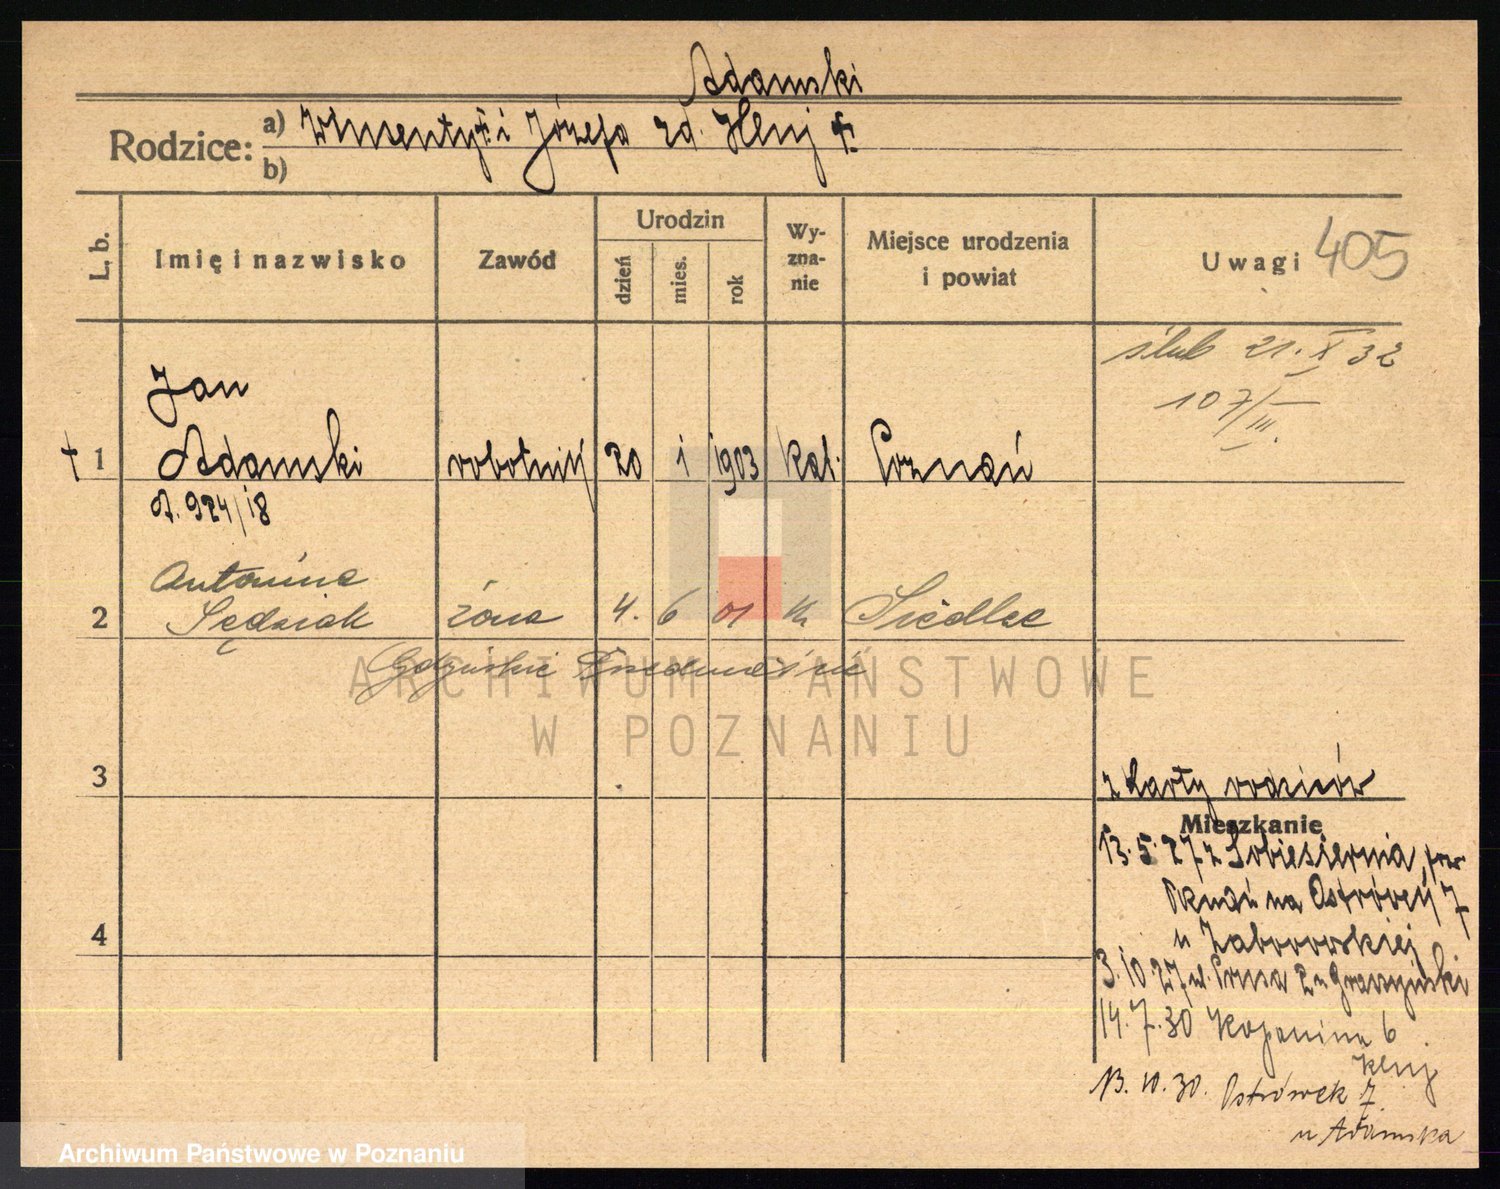 Adamski
Rodzice: a) i Józefa zd. Kluj
b)
L. b.
Imię i nazwisko
Zawód
Urodzin
dzień
mies.
rok
Wy-
zna-
nie
Miejsce urodzenia
i powiat
Uwagi 405
ślub 21. X 32
107/III.
Jan
† 1 Adamski robotnik 20 1 1903 kat. Poznań
924/18
Antonina
2 Sędziak żona 4. 6 01 k Siedlec
Przedmieście
3
z karty rodziców
Mieszkanie
13. 5. 27 z Sobiesiernia, pow
Poznań na Ostrówek 7
4
u Zaborowskiej
3. 10 27 2 u Graszyński
14. 7. 30 Kopanina 6
Kluj
13. 10. 30. Ostrówek 7
u Adamska
ARCHIWUM PAŃSTWOWE
W POZNANIU
Archiwum Państwowe w Poznaniu